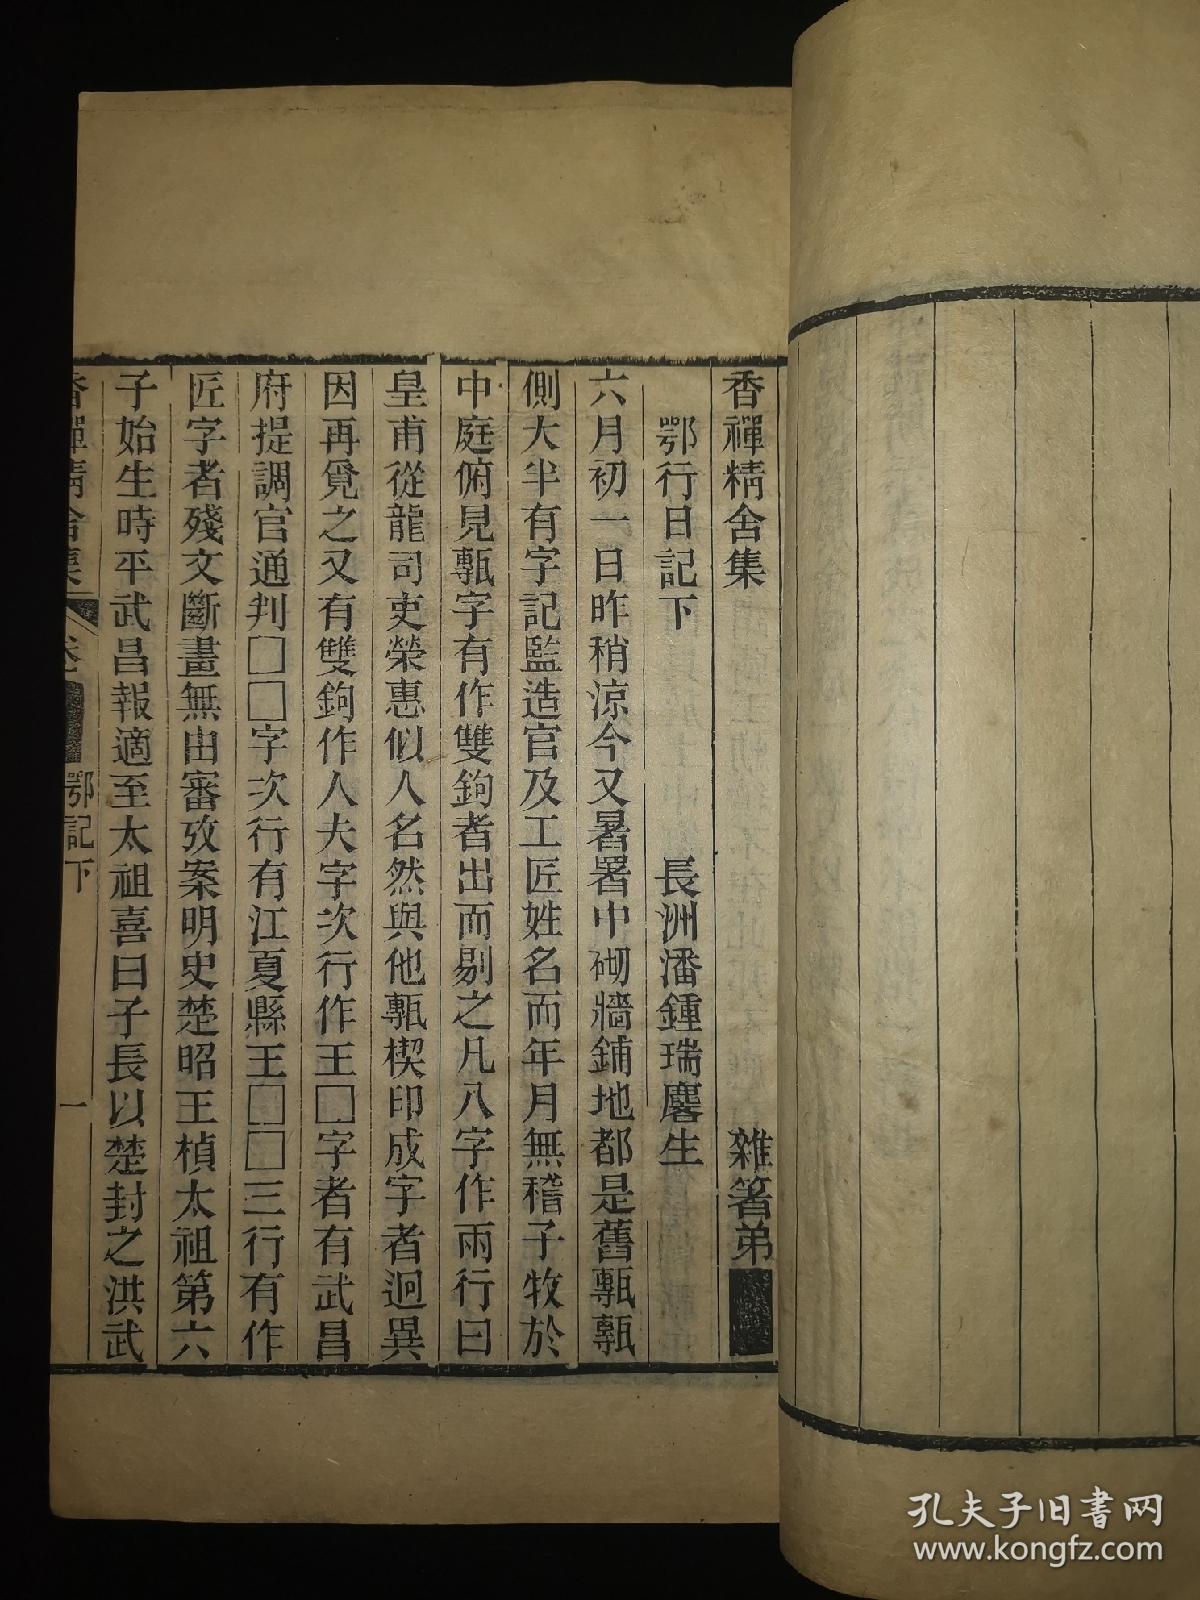 香禪精舍集　雜箸弟
鄂行日記下　長洲潘鍾瑞麐生
六月初一日昨稍涼今又暑署中砌牆鋪地都是舊甎甎
側大半有字記監造官及工匠姓名而年月無稽子牧於
中庭俯見甎字有作雙鉤者出而剔之凡八字作兩行曰
皇甫從龍司吏榮惠似人名然與他甎楔印成字者迥異
因再覓之又有雙鉤作人大字次行作王□字者有武昌
府提調官通判□□字次行有江夏縣王□□三行有作
匠字者殘文斷畫無由審攷案明史楚昭王楨太祖第六
子始生時平武昌報適至太祖喜曰子長以楚封之洪武
香禪精舍集　卷　鄂記下　一
孔夫子旧书网
www.kongfz.com